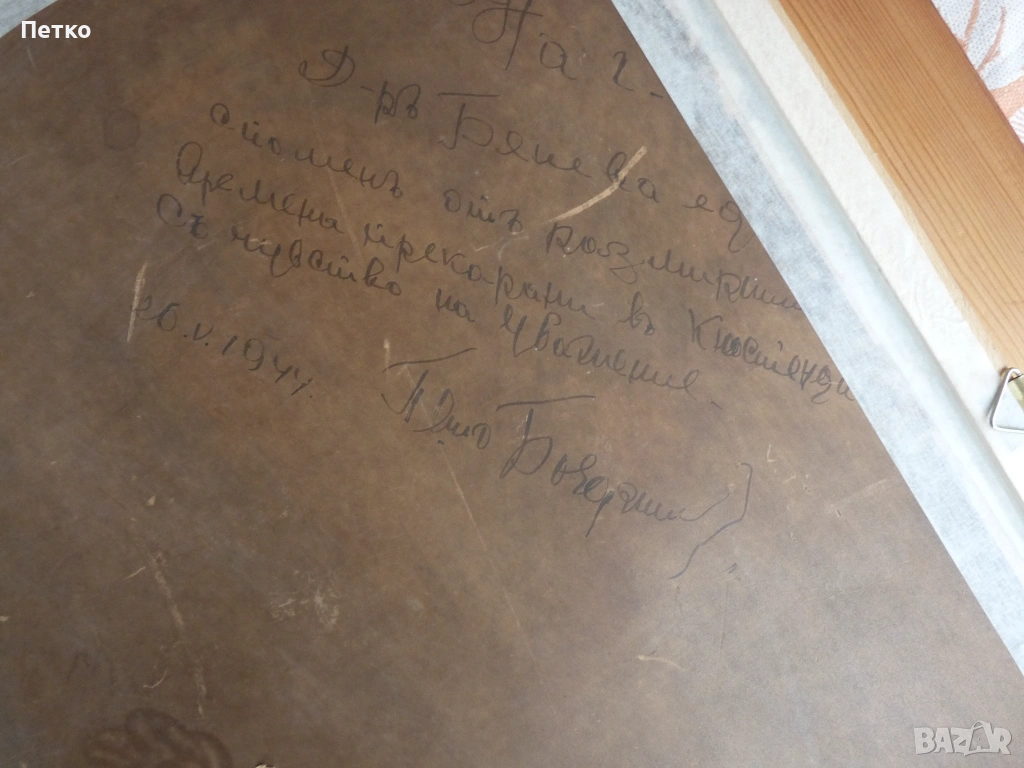 Петко
На г.
Д-ръ Бянева ед
споменъ отъ размирни
времена прекарани въ Кюстенди
Съ чувство на уважение.
26.V.1944.
BAZAR